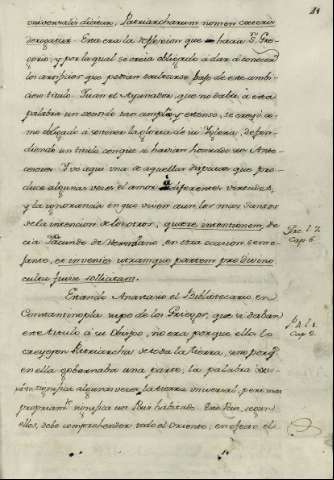 21
universalis dicitur, Patriarcharum nomen caeteris
derogatur. Esta era la reflexion que hacia S. Gre-
gorio, y por la qual se creia obligado á dar á conocer
los artificios que podian ocultarse bajo de este ambi-
cioso titulo. Juan el Ayunador, que no daba á esta
palabra un sentido tan amplio, y extenso, se creyó co-
mo obligado a sostener la gloria de su Iglesia, defen-
diendo un titulo con que se havian honrado sus Ante-
cesores. Y vé aqui una de aquellas disputas que pro-
duce algunas veces el amor á diferentes virtudes,
y la ignorancia en que viven aun los mas Santos
de la intencion de los otros, quaere intentionem, de
cia Facundo de Hermiano en otra ocasion seme-
jante, et invenies utramque partem pro divino
cultu fuisse sollicitam.
Fac. l. 2.
Cap. 6.
Estando Anastasio el Bibliotecario en
Constantinopla supo de los Griegos, que si daban
este titulo á su Obispo, no era porque ellos lo
creyesen Patriarcha de toda la tierra, sino porq.
en ella gobernaba una parte, la palabra
significa algunas veces la tierra universal, pero mas
propriamte. significa un Pais habitado. Este Pais, segun
ellos, debe comprehender todo el Oriente; en efecto el
Cap. 6.